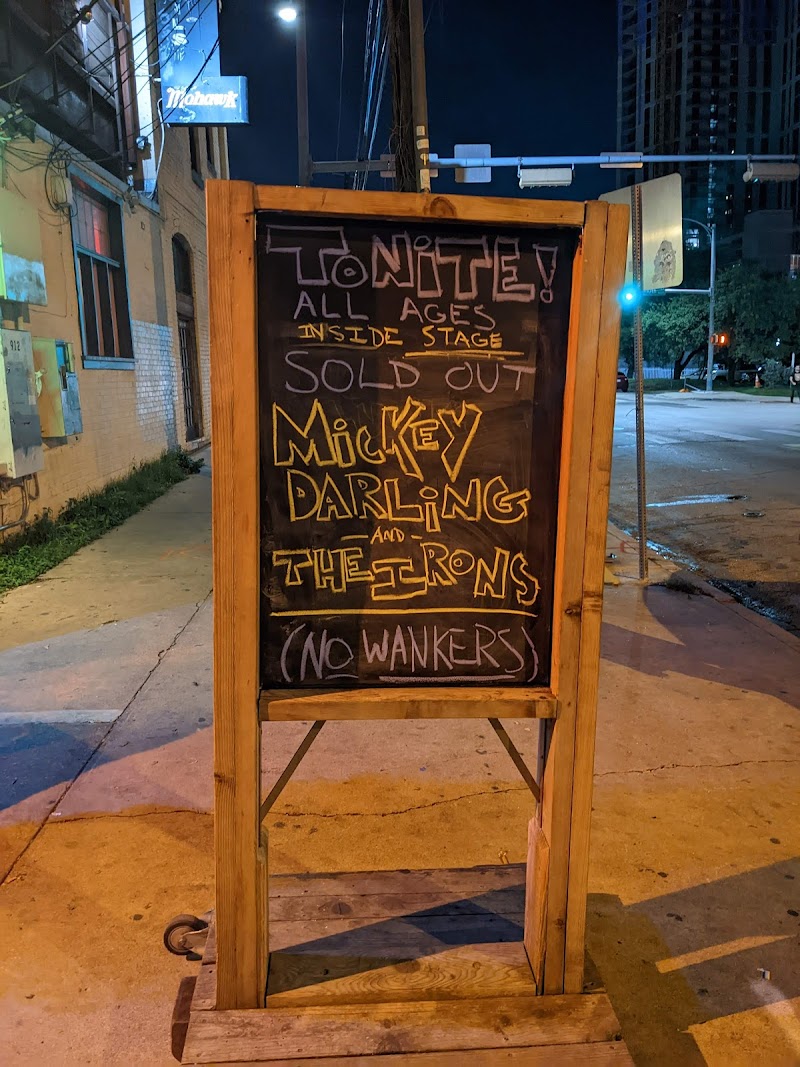 Mohawk
912
TONiTE!
ALL AGES
INSIDE STAGE
SOLD OUT
MiCKEY
DARLiNG
-AND-
THE IRONS
(NO WANKERS)